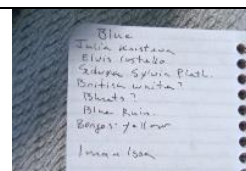 Blue
Julia Kristeva
Elvis Costello
Sylvia Plath.
British writer?
Bluets?
Blue Ruin.
Bongos: yellow
Iman Issa